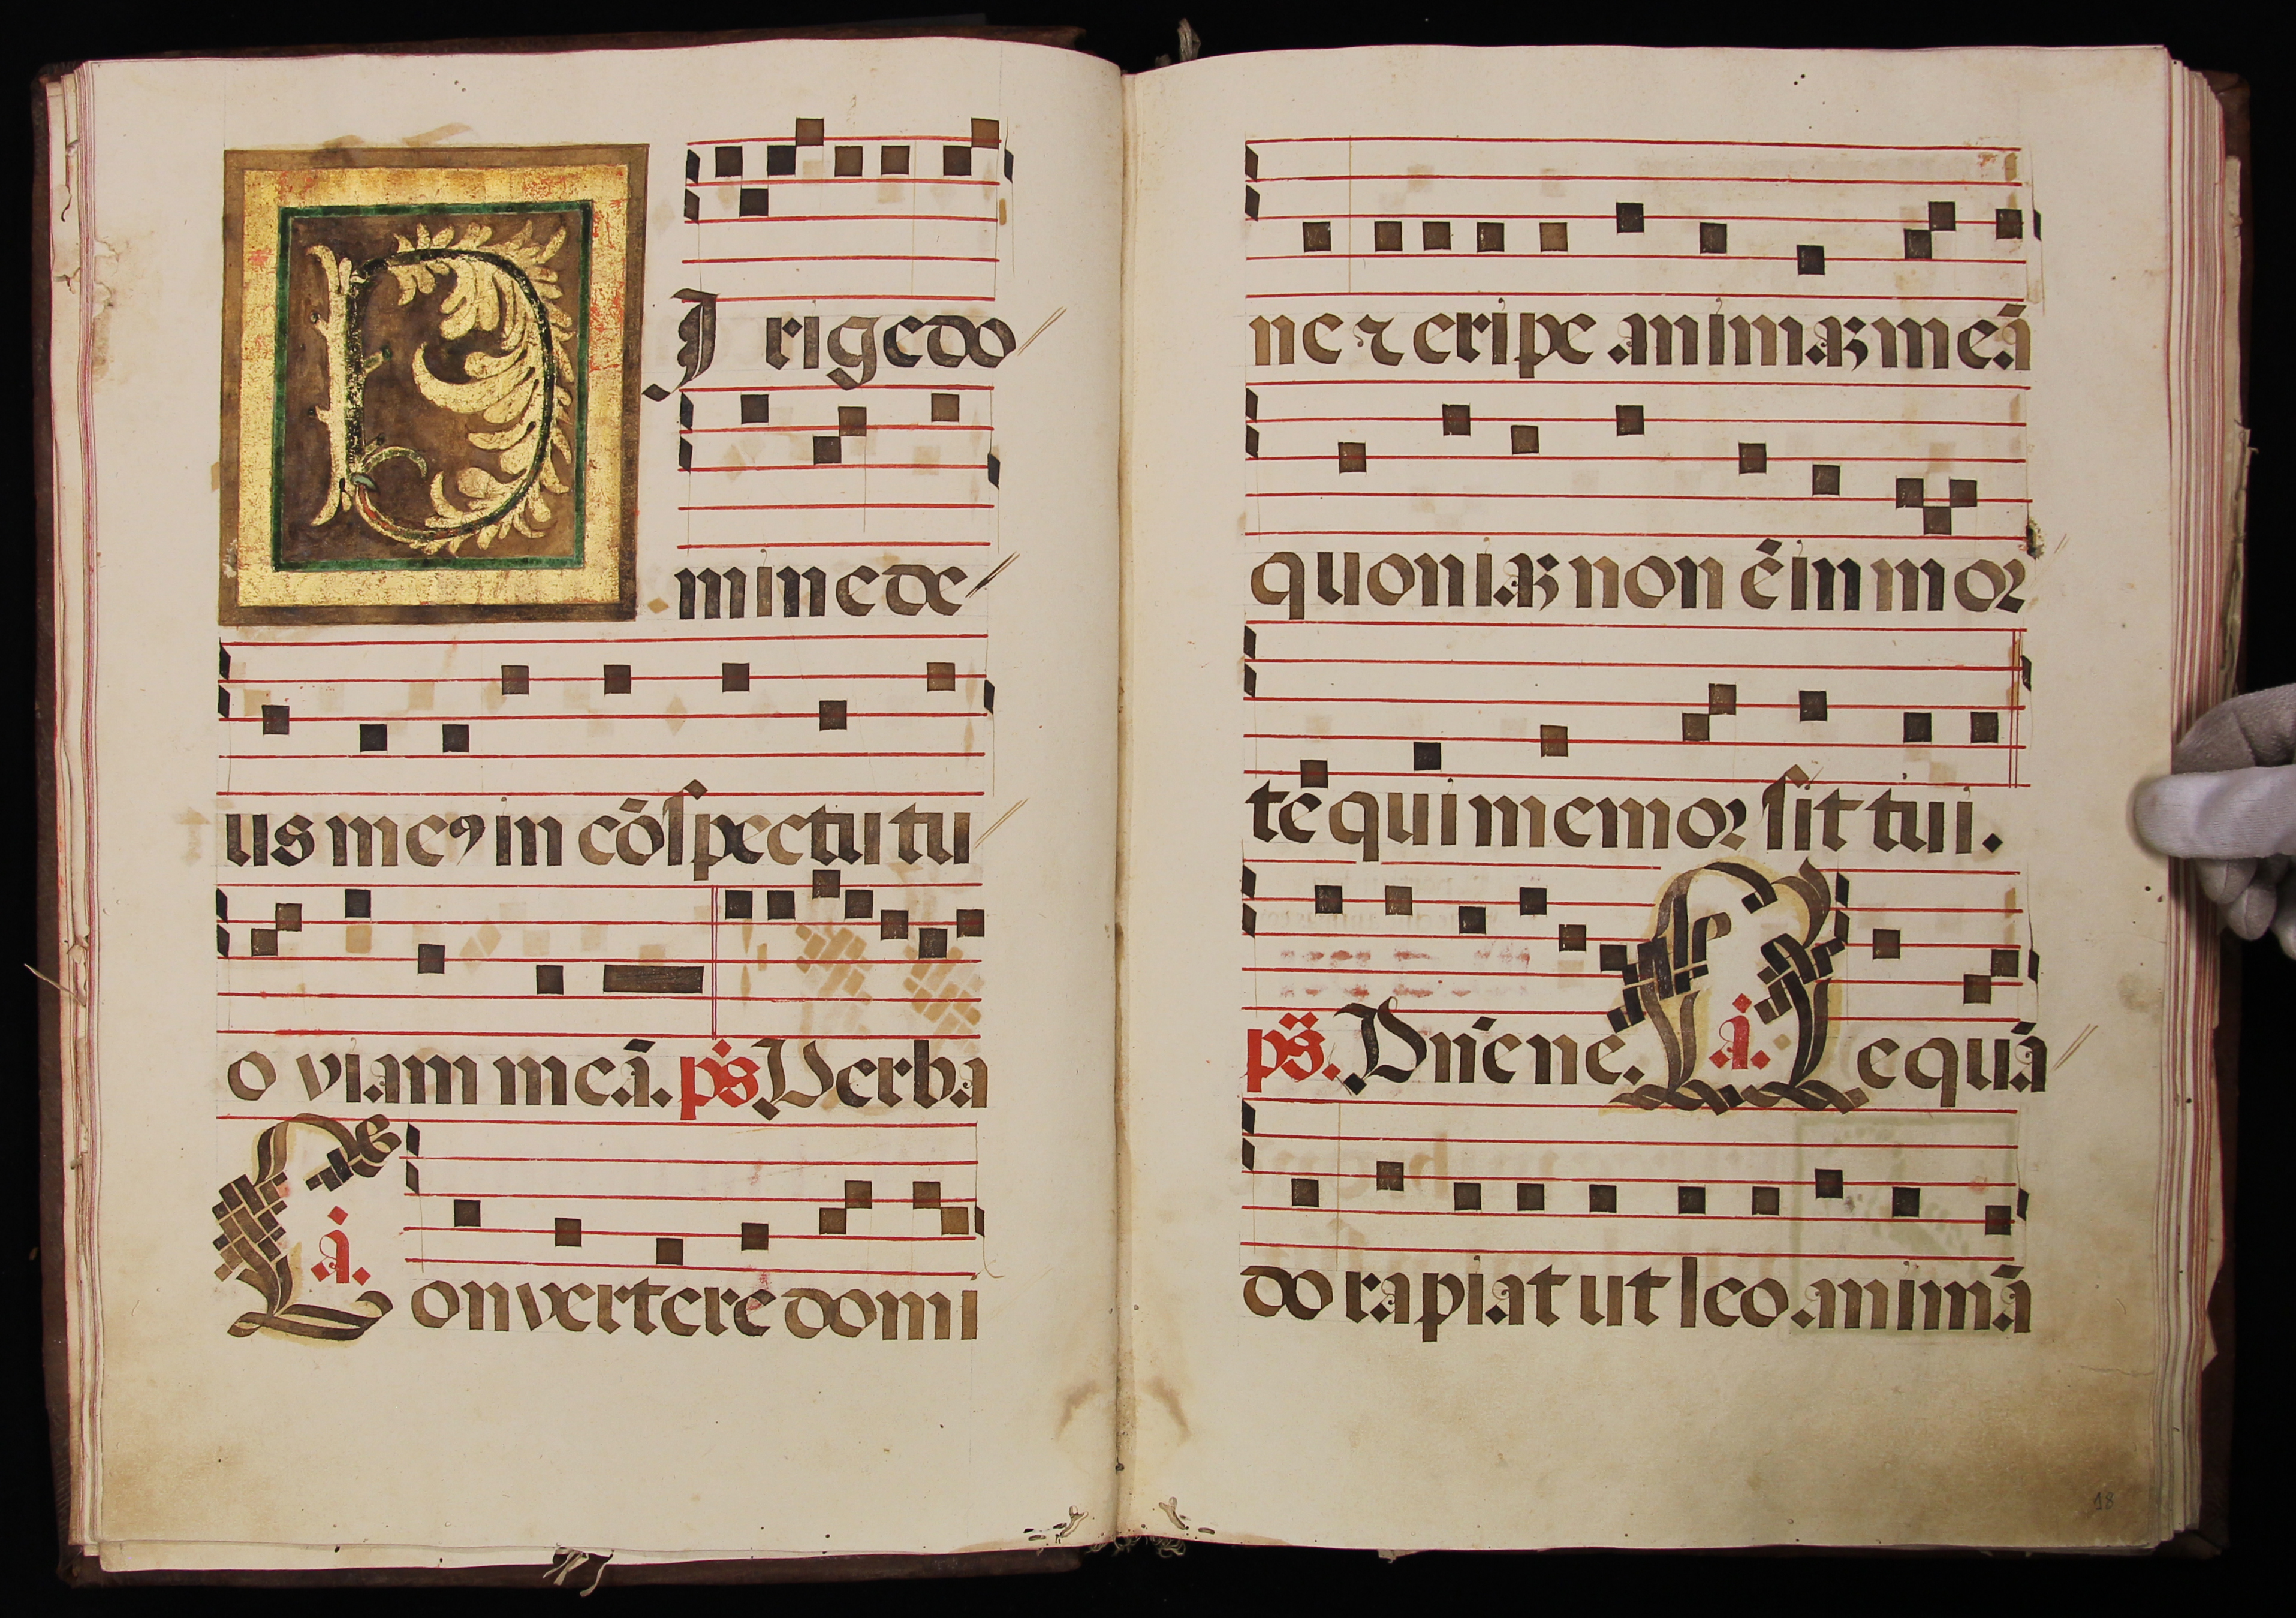 DIrige do
mine de
us meꝰ in cōspectu tu
o viam meā. p̄s Verba
Conuertere domi
ā.
ne ⁊ eripe animaꝫ meā
quoniaꝫ non ē in mor
te qui memor sit tui.
p̄s. Dn̄e ne. ā. Ne quā
do rapiat ut leo animā
18